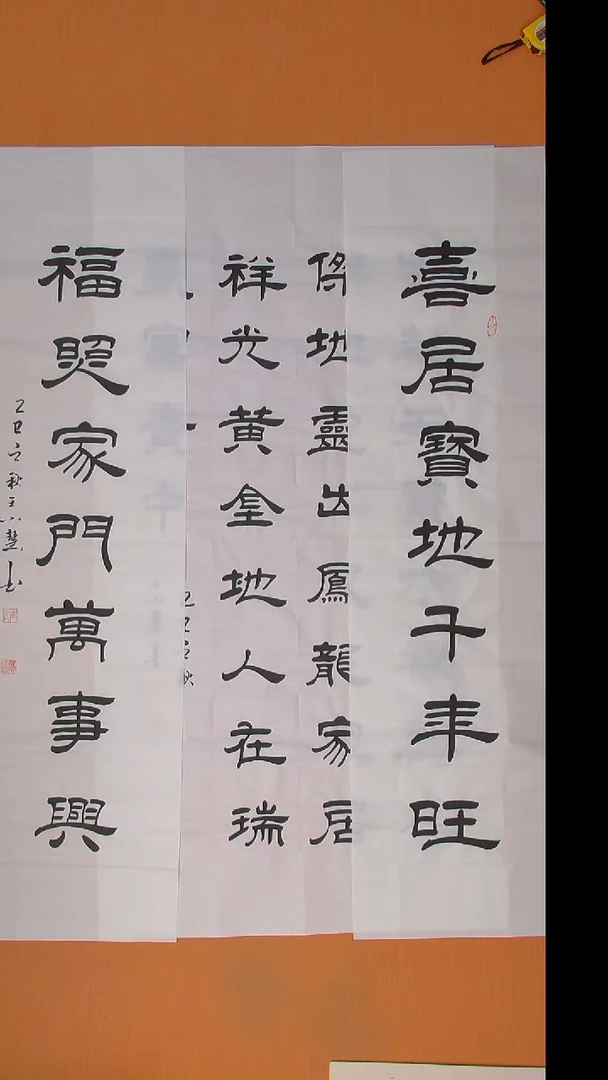 喜居寶地千年旺
地靈出鳳龍家居
祥光黃金地人在瑞
福照家門萬事興
乙巳之秋王八慧书
乙巳之秋